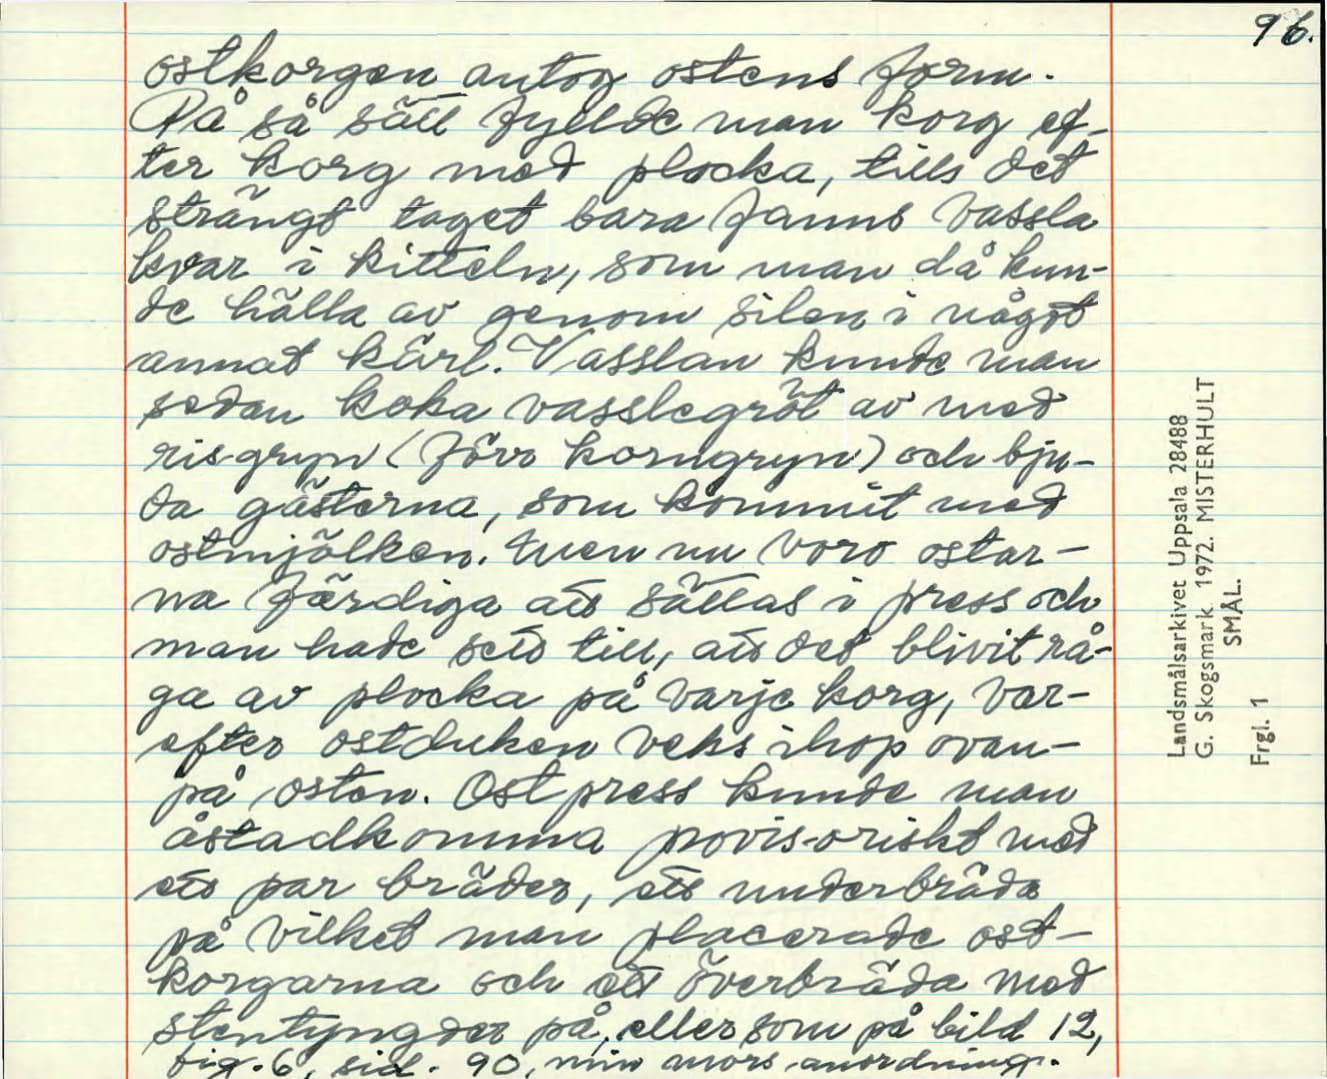 96.
ostkorgen antog ostens form.
På så sätt fyllde man korg ef-
ter korg med plocka, tills det
strängt taget bara fanns vassla
kvar i kitteln, som man då kun-
de hälla av genom silen i något
annat kärl. Vasslan kunde man
sedan koka vasslegröt av med
risgryn (förr korngryn) och bju-
da gästerna, som kommit med
ostmjölken. Även nu voro ostar-
na färdiga att sättas i press och
man hade sett till, att det blivit rå-
ga av plocka på varje korg, var-
efter ostduken veks ihop ovan-
på osten. Ostpress kunde man
åstadkomma provisoriskt med
ett par bräder, ett underbräde
på vilket man placerade ost-
korgarna och ett överbräda med
stentyngder på, eller som på bild 12,
fig. 6, sid. 90, min mors anordning.
Landsmålsarkivet Uppsala 28488
G. Skogsmark. 1972. MISTERHULT
SMÅL.
Frgl. 1